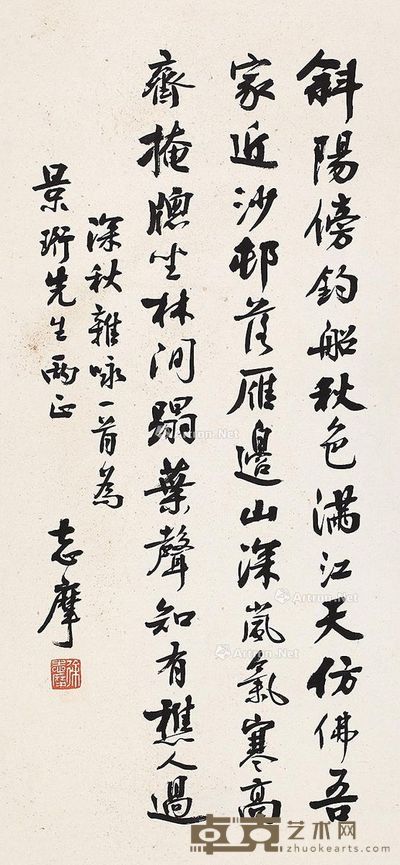 斜陽傍釣船秋色滿江天仿佛吾
家近沙邨落雁邊山深嵐氣寒高
齊掩牕坐林洞蹋葉聲知有樵人過
深秋雜咏一首為
景珩先生兩正
志摩
Artron.Net
Artron.Net
Artron.Net
卓克艺术网
zhuokearts.com